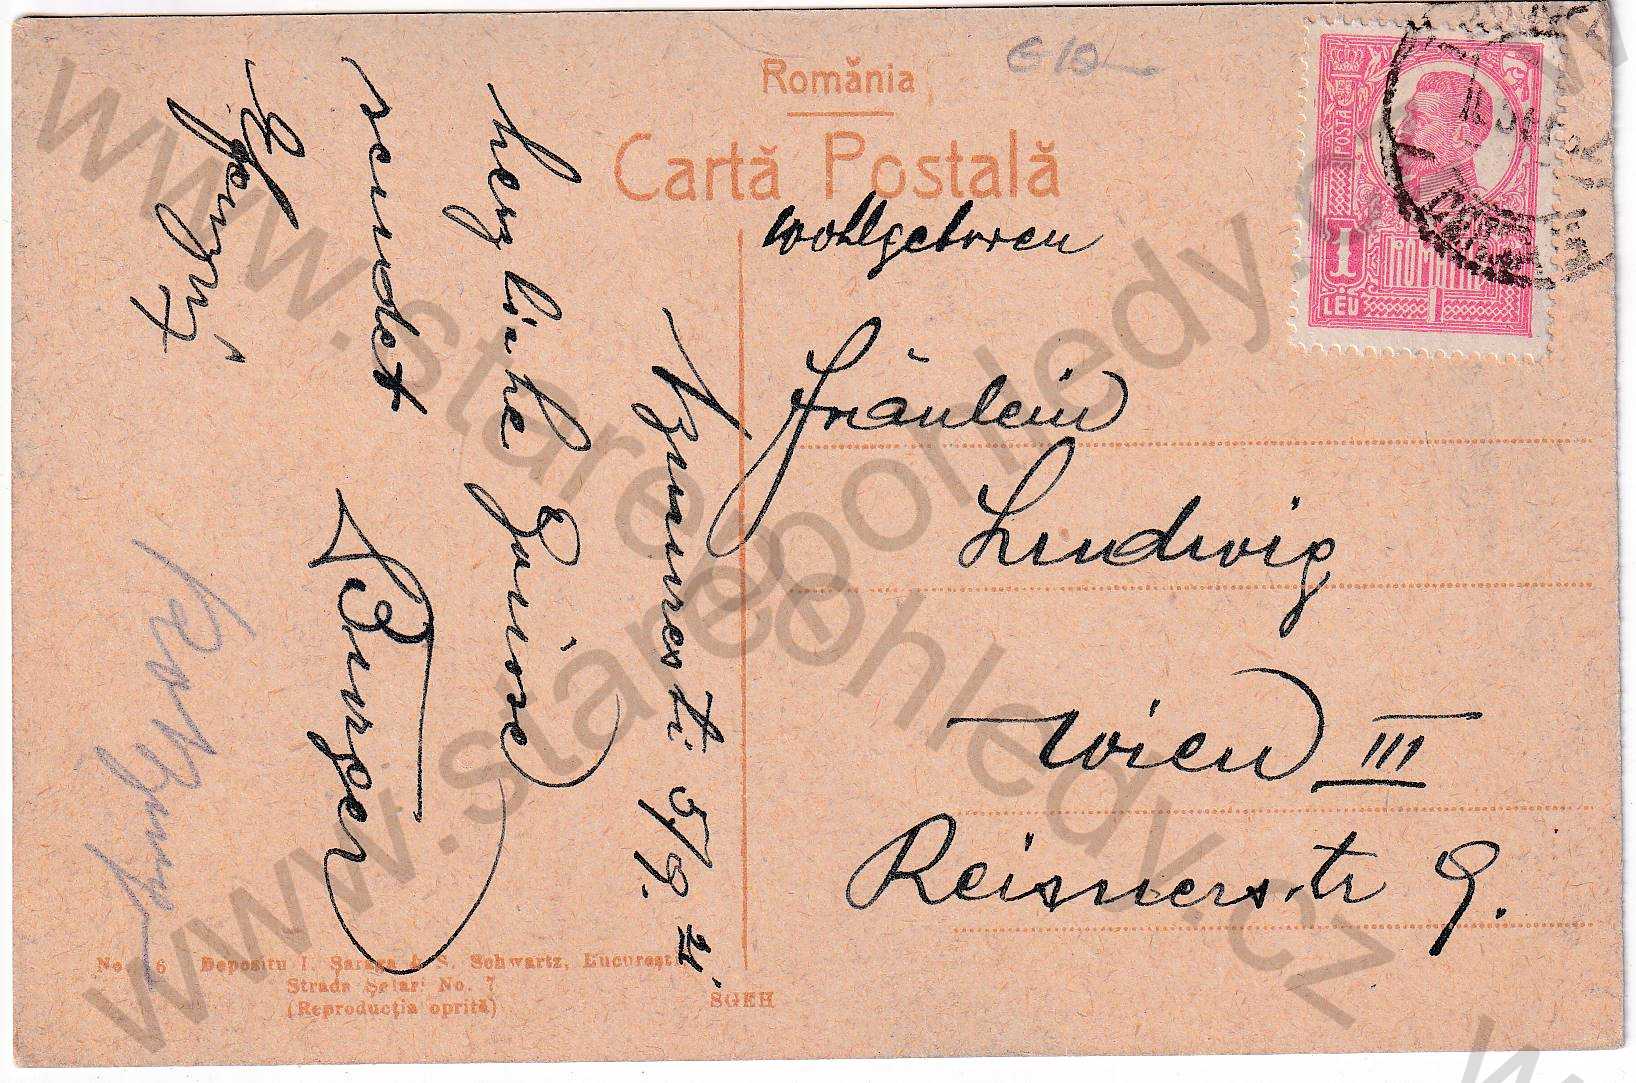 România
Cartă Postală
POSTA
1
LEU
ROMANIA
Wohlgeboren
Fräulein
Ludwig
Wien III
Reisnerstr 9.
Bucuresti 5/9. 21
herzliche Grüsse
sendet
Burger
No. 6 Depositu I. Saraga & S. Schwartz, Bucuresti
Strada Șelari No. 7
(Reproducția oprită)
SGEH
www.starepohledy.cz
www.starepohledy.cz